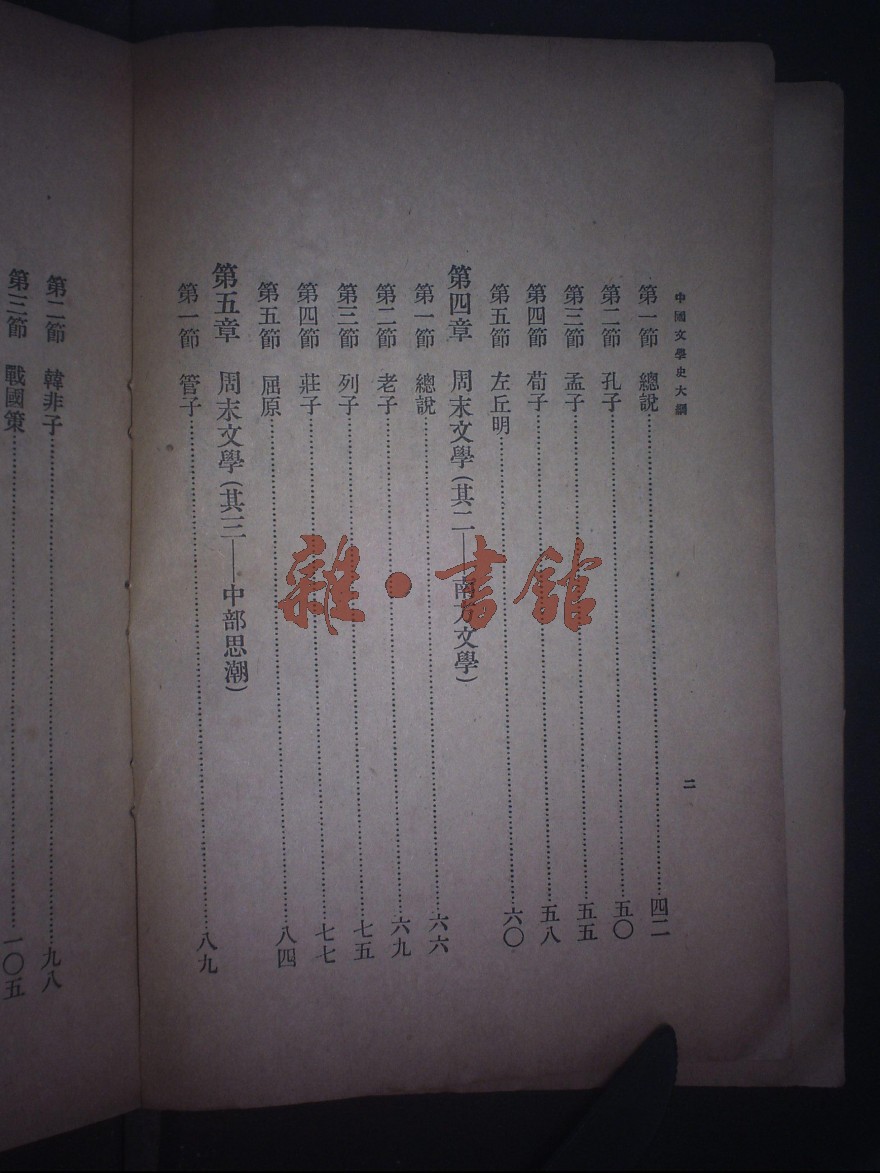 中國文學史大綱
二
第一節 總說……四二
第二節 孔子……五〇
第三節 孟子……五五
第四節 荀子……五八
第五節 左丘明……六〇
第四章 周末文學(其二——南方文學)
第一節 總說……六六
第二節 老子……六九
第三節 列子……七五
第四節 莊子……七七
第五節 屈原……八四
第五章 周末文學(其三——中部思潮)
第一節 管子……八九
第二節 韓非子……九八
第三節 戰國策……一〇五
雜·書館